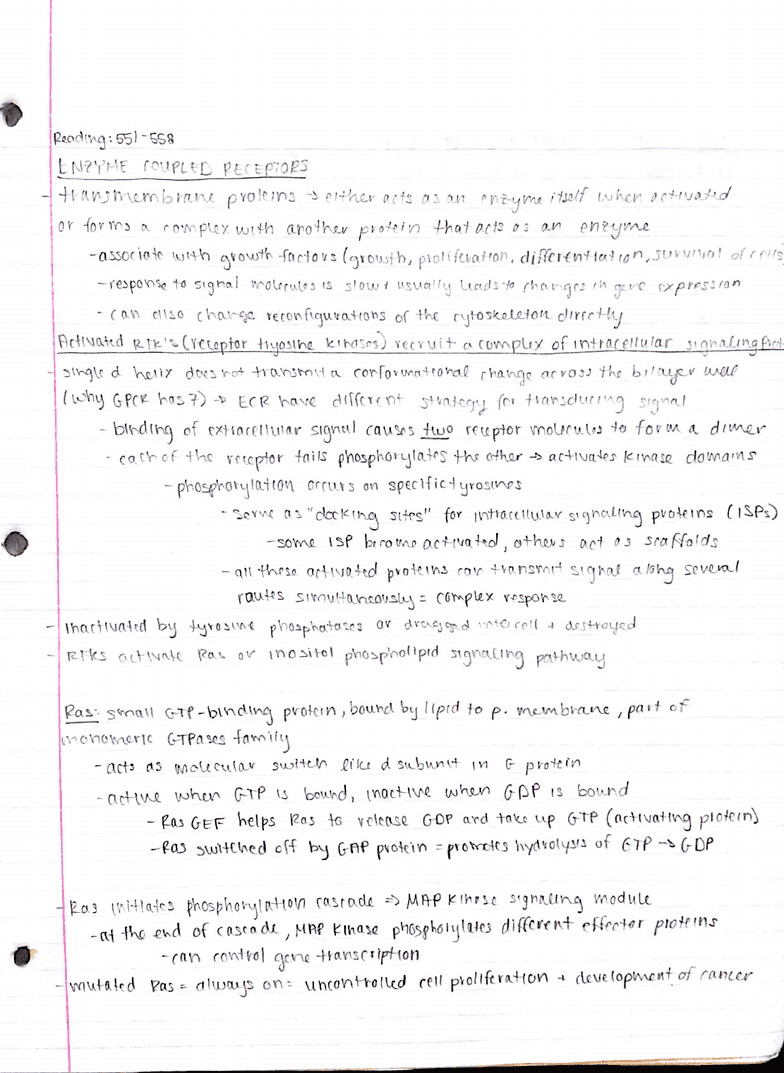 Reading: 551-558
ENZYME COUPLED RECEPTORS
- transmembrane proteins → either acts as an enzyme itself when activated
or forms a complex with another protein that acts as an enzyme
- associate with growth factors (growth, proliferation, differentiation, survival of cells
- response to signal molecules is slow + usually leads to changes in gene expression
- can also change reconfigurations of the cytoskeleton directly
Activated RTK's (receptor tryosine kinases) recruit a complex of intracellular signaling prot
- single α helix does not transmit a conformational change across the bilayer well
(why GPCR has 7) → ECR have different strategy for transducing signal
- binding of extracellular signal causes two receptor molecules to form a dimer
- each of the receptor tails phosphorylates the other → activates kinase domains
- phosphorylation occurs on specific tyrosines
- serve as "docking sites" for intracellular signaling proteins (ISPs)
- some ISP become activated, others act as scaffolds
- all these activated proteins can transmit signal along several
routes simultaneously = complex response
- inactivated by tyrosine phosphatases or dragged into cell + destroyed
- RTKs activate Ras or inositol phospholipid signaling pathway
Ras: small GTP-binding protein, bound by lipid to p. membrane, part of
monomeric GTPases family
- acts as molecular switch like α subunit in G protein
- active when GTP is bound, inactive when GDP is bound
- Ras GEF helps Ras to release GDP and take up GTP (activating protein)
- Ras switched off by GAP protein = promotes hydrolysis of GTP → GDP
- Ras initiates phosphorylation cascade ⇒ MAP kinase signaling module
- at the end of cascade, MAP kinase phosphorylates different effector proteins
- can control gene transcription
- mutated Ras = always on = uncontrolled cell proliferation + development of cancer